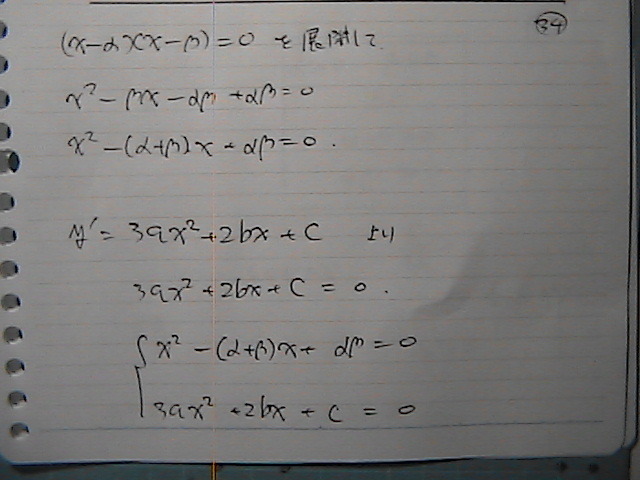 ㉞
(x-α)(x-β)=0 を展開して
x²-βx-αβ+αβ=0
x²-(α+β)x+αβ=0.
y'=3ax²+2bx+c より
3ax²+2bx+c=0.
x²-(α+β)x+αβ=0
3ax²+2bx+c=0